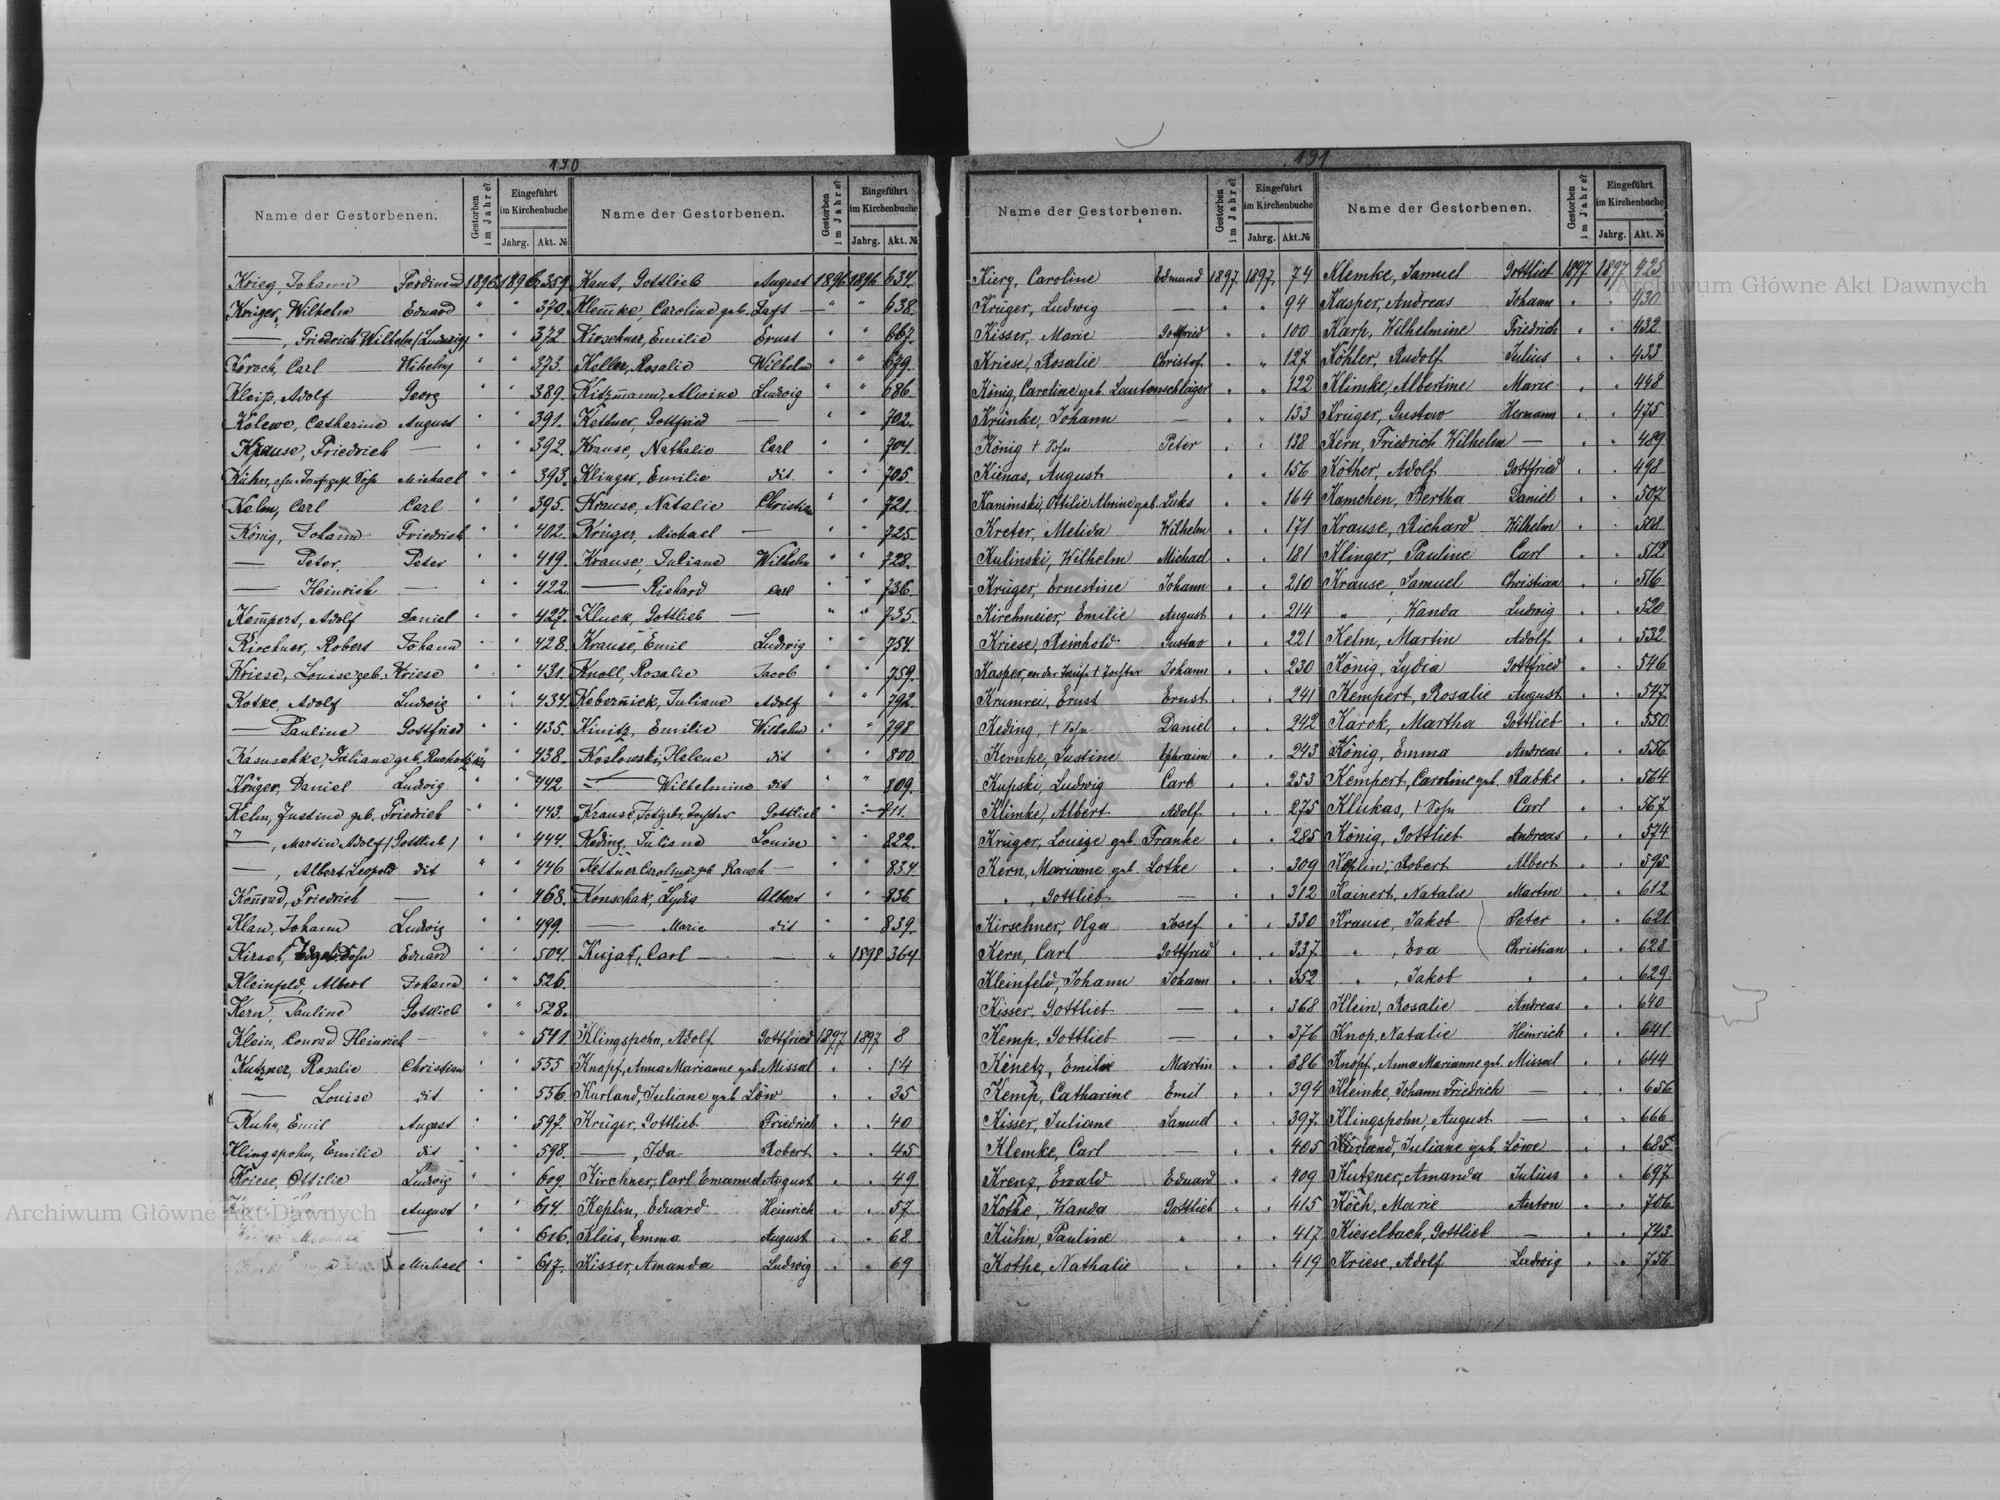 130
Name der Gestorbenen. Gestorben im Jahre? Eingeführt im Kirchenbuche Jahrg. Akt. №
Krieg, Johann Ferdinand 1896 1896 359.
Krüger, Wilhelm Eduard " " 370.
—, Friedrich Wilhelm (Ludwig) " " 372
Koroch, Carl Wilhelm " " 373.
Kleiß, Adolf Georg " " 389.
Kolewe, Catharine August " " 391.
Krause, Friedrich — " " 392.
Kühn, Sohn Michael " " 393.
Kelm, Carl Carl " " 395.
König, Johann Friedrich " " 402.
— Peter, Peter " " 419.
— Heinrich — " " 422
Kempert, Adolf Daniel " " 427.
Kirchner, Robert Johann " " 428.
Kriese, Louise geb. Kriese " " 431.
Kotke, Adolf Ludwig " " 434.
— Pauline Gottfried " " 435.
Kasuschke, Juliane geb. " " 438.
Krüger, Daniel Ludwig " " 442
Kelm, Justine geb. Friedrich " " 443.
—, Martin Adolf (Gottlieb) " " 444.
—, Albert Leopold dit " " 446
Konrad, Friedrich — " " 468.
Klan, Johann Ludwig " " 499.
Kirset, Sohn Eduard " " 504.
Kleinfeld, Albert Johann " " 526.
Kern, Pauline Gottlieb " " 528.
Klein, Conrad Heinrich — " " 541.
Kutzner, Rosalie Christian " " 555
— Louise dit " " 556.
Kuhn, Emil August " " 597.
Klingspohn, Emilie dit " " 598.
Kriese, Ottilie Ludwig " " 609.
August " " 614.
— " " 616.
Michael " " 617.
Name der Gestorbenen. Gestorben im Jahre? Eingeführt im Kirchenbuche Jahrg. Akt. №
Kant, Gottlieb August 1896 1896 634.
Klemke, Caroline geb. Zaft — " " 638.
Kirschner, Emilie Ernst " " 667.
Keller, Rosalie Wilhelm " " 679.
Kitzmann, Alwine Ludwig " " 686.
Kettner, Gottfried — " " 702.
Krause, Nathalie Carl " " 704.
Klinger, Emilie dit " " 705.
Krause, Natalie Christian " " 721.
Krüger, Michael — " " 725.
Krause, Juliane Wilhelm " " 728.
— Richard Carl " " 736.
Kluck, Gottlieb — " " 735.
Krause, Emil Ludwig " " 754.
Knoll, Rosalie Jacob " " 759.
Kobernick, Juliane Adolf " " 792.
Kinitz, Emilie Wilhelm " " 798
Koslowski, Helene dit " " 800
— Wilhelmine dit " " 809.
Krause, Todtgeb. Tochter Gottlieb " " 811.
Keding, Juliane Louise " " 822.
Kettner Caroline geb. Rauch — " " 834
Konschak, Lydia Albert " " 836.
— Marie dit " " 839.
Kujat, Carl — " 1898 364
Klingspohn, Adolf Gottfried 1897 1897 8
Knopf, Anna Marianne geb. Missal . . 14
Kurland, Juliane geb. Löw . . 35
Krüger, Gottlieb Friedrich . . 40
—, Ida Robert . . 45
Kirchner, Carl Emanuel August . . 49
Keplin, Eduard Heinrich . . 57
Kleis, Emma August . . 68
Kisser, Amanda Ludwig . . 69
191
Name der Gestorbenen. Gestorben im Jahre? Eingeführt im Kirchenbuche Jahrg. Akt. №
Kiery, Caroline Edmund 1897. 1897. 74
Krüger, Ludwig — . . 94
Kisser, Marie Gottfried " " 100
Kriese, Rosalie Christof. " " 127
König, Caroline geb. Lautenschläger . . 122
Krünke, Johann — . . 133
König † Sohn Peter . . 138
Kienas, August . . 156
Kaminski, Ottilie Almine geb. Luks . . 164
Kreter, Melida Wilhelm . . 171
Kulinski, Wilhelm Michael . . 181
Krüger, Ernestine Johann . . 210
Kirchmeier, Emilie August . . 214
Kriese, Reinhold Gustav . . 221
Kasper, vor der Taufe † Tochter Johann . . 230
Krumrei, Ernst Ernst . . 241
Keding, † Sohn Daniel . . 242
Kernke, Justine Ephraim . . 243
Kupski, Ludwig Carl . . 253
Klimke, Albert Adolf . . 275
Krüger, Louise geb. Franke . . 285
Kern, Marianne geb. Lotke . . 309
" , Gottlieb — . . 312
Kirschner, Olga Josef . . 330
Kern, Carl Gottfried . . 337
Kleinfeld, Johann Johann . . 352
Kisser, Gottlieb — . . 368
Kemp, Gottlieb — . . 376
Kenetz, Emilie Martin . . 386
Kemp, Catharine Emil . . 394
Kisser, Juliane Samuel . . 397
Klemke, Carl — . . 405
Krenz, Ewald Eduard . . 409
Kothe, Wanda Gottlieb . . 415
Kühn, Pauline " . . 417
Kothe, Nathalie " . . 419
Name der Gestorbenen. Gestorben im Jahre? Eingeführt im Kirchenbuche Jahrg. Akt. №
Klemke, Samuel Gottlieb 1897 1897 425
Kasper, Andreas Johann . . 430
Karp, Wilhelmine Friedrich . . 432
Köhler, Rudolf Julius . . 433
Klimke, Albertine Marie . . 448
Krüger, Gustav Hermann . . 475
Kern, Friedrich Wilhelm — . . 489
Köther, Adolf Gottfried . . 498
Kamchen, Bertha Daniel . . 507
Krause, Richard Wilhelm . . 508
Klinger, Pauline Carl . . 512
Krause, Samuel Christian . . 516
" , Wanda Ludwig . . 520
Kelm, Martin Adolf . . 532
König, Lydia Gottfried . . 546
Kempert, Rosalie August . . 547
Karok, Martha Gottlieb . . 550
König, Emma Andreas . . 556
Kempert, Caroline geb. Rabke . . 564
Klukas, † Sohn Carl . . 567
König, Gottlieb Andreas . . 574
Keplin, Robert Albert . . 595
Kainert, Natalie Martin . . 612
Krause, Jakob Peter . . 621
" , Eva Christian . . 628
" , Jakob " . . 629
Klein, Rosalie Andreas . . 640
Knop, Natalie Heinrich . . 641
Knopf, Anna Marianne geb. Missal . . 644
Kleinke, Johann Friedrich — . . 656
Klingspohn, August — . . 666
Kurland, Juliane geb. Löwe . . 685
Kutzner, Amanda Julius . . 697
Koch, Marie Anton . . 706
Kieselbach, Gottlieb — . . 743
Kriese, Adolf Ludwig . . 756
Archiwum Główne Akt Dawnych
Archiwum Główne Akt Dawnych